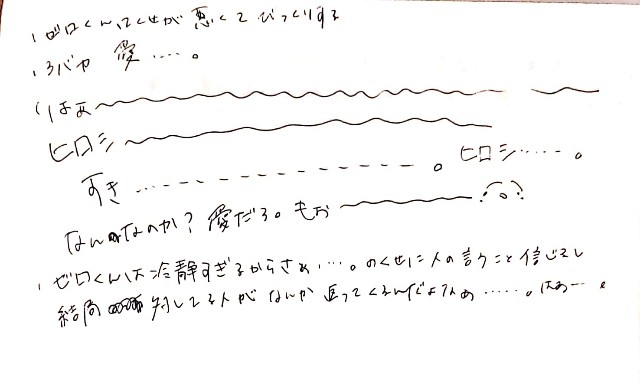 、ゼロくんはくせが悪くてびっくりする
、ろバヤ 愛……。
くはあ〜〜〜
ヒロシ〜〜〜
すき……………。ヒロシ……。
なんなのか?愛だろ。もお〜〜〜
、ゼロくんは冷静すぎるからさぁ……。のくせに人の言うこと信じるし
結局 対してる人がなんか 返ってくるんだよなぁ……。はぁ…。